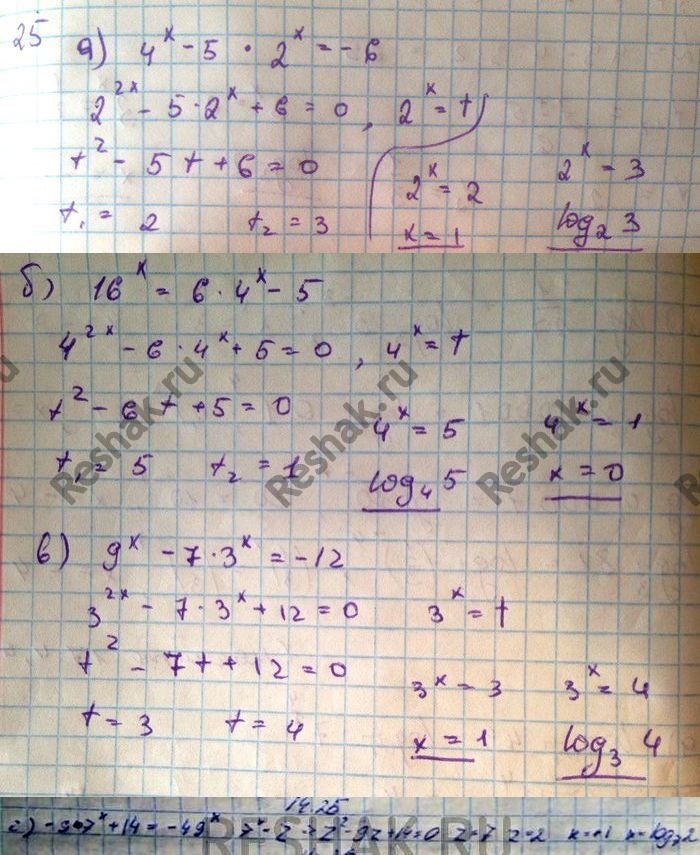 25
а) 4^x - 5 · 2^x = - 6
2^2x - 5 · 2^x + 6 = 0, 2^x = t
t^2 - 5t + 6 = 0
2^x = 2 2^x = 3
t₁ = 2 t₂ = 3
x = 1 log₂ 3
б) 16^x = 6 · 4^x - 5
4^2x - 6 · 4^x + 5 = 0, 4^x = t
t^2 - 6t + 5 = 0
4^x = 5 4^x = 1
t₁ = 5 t₂ = 1
log₄ 5 x = 0
в) 9^x - 7 · 3^x = -12
3^2x - 7 · 3^x + 12 = 0 3^x = t
t^2 - 7t + 12 = 0
3^x = 3 3^x = 4
t = 3 t = 4
x = 1 log₃ 4
14.25
г) -9·7^x + 14 = -49^x 7^x = z z^2 - 9z + 14 = 0 z = 7 z = 2 x = 1 x = log₇2
Reshak.ru
Reshak.ru
Reshak.ru
RESHAK.RU